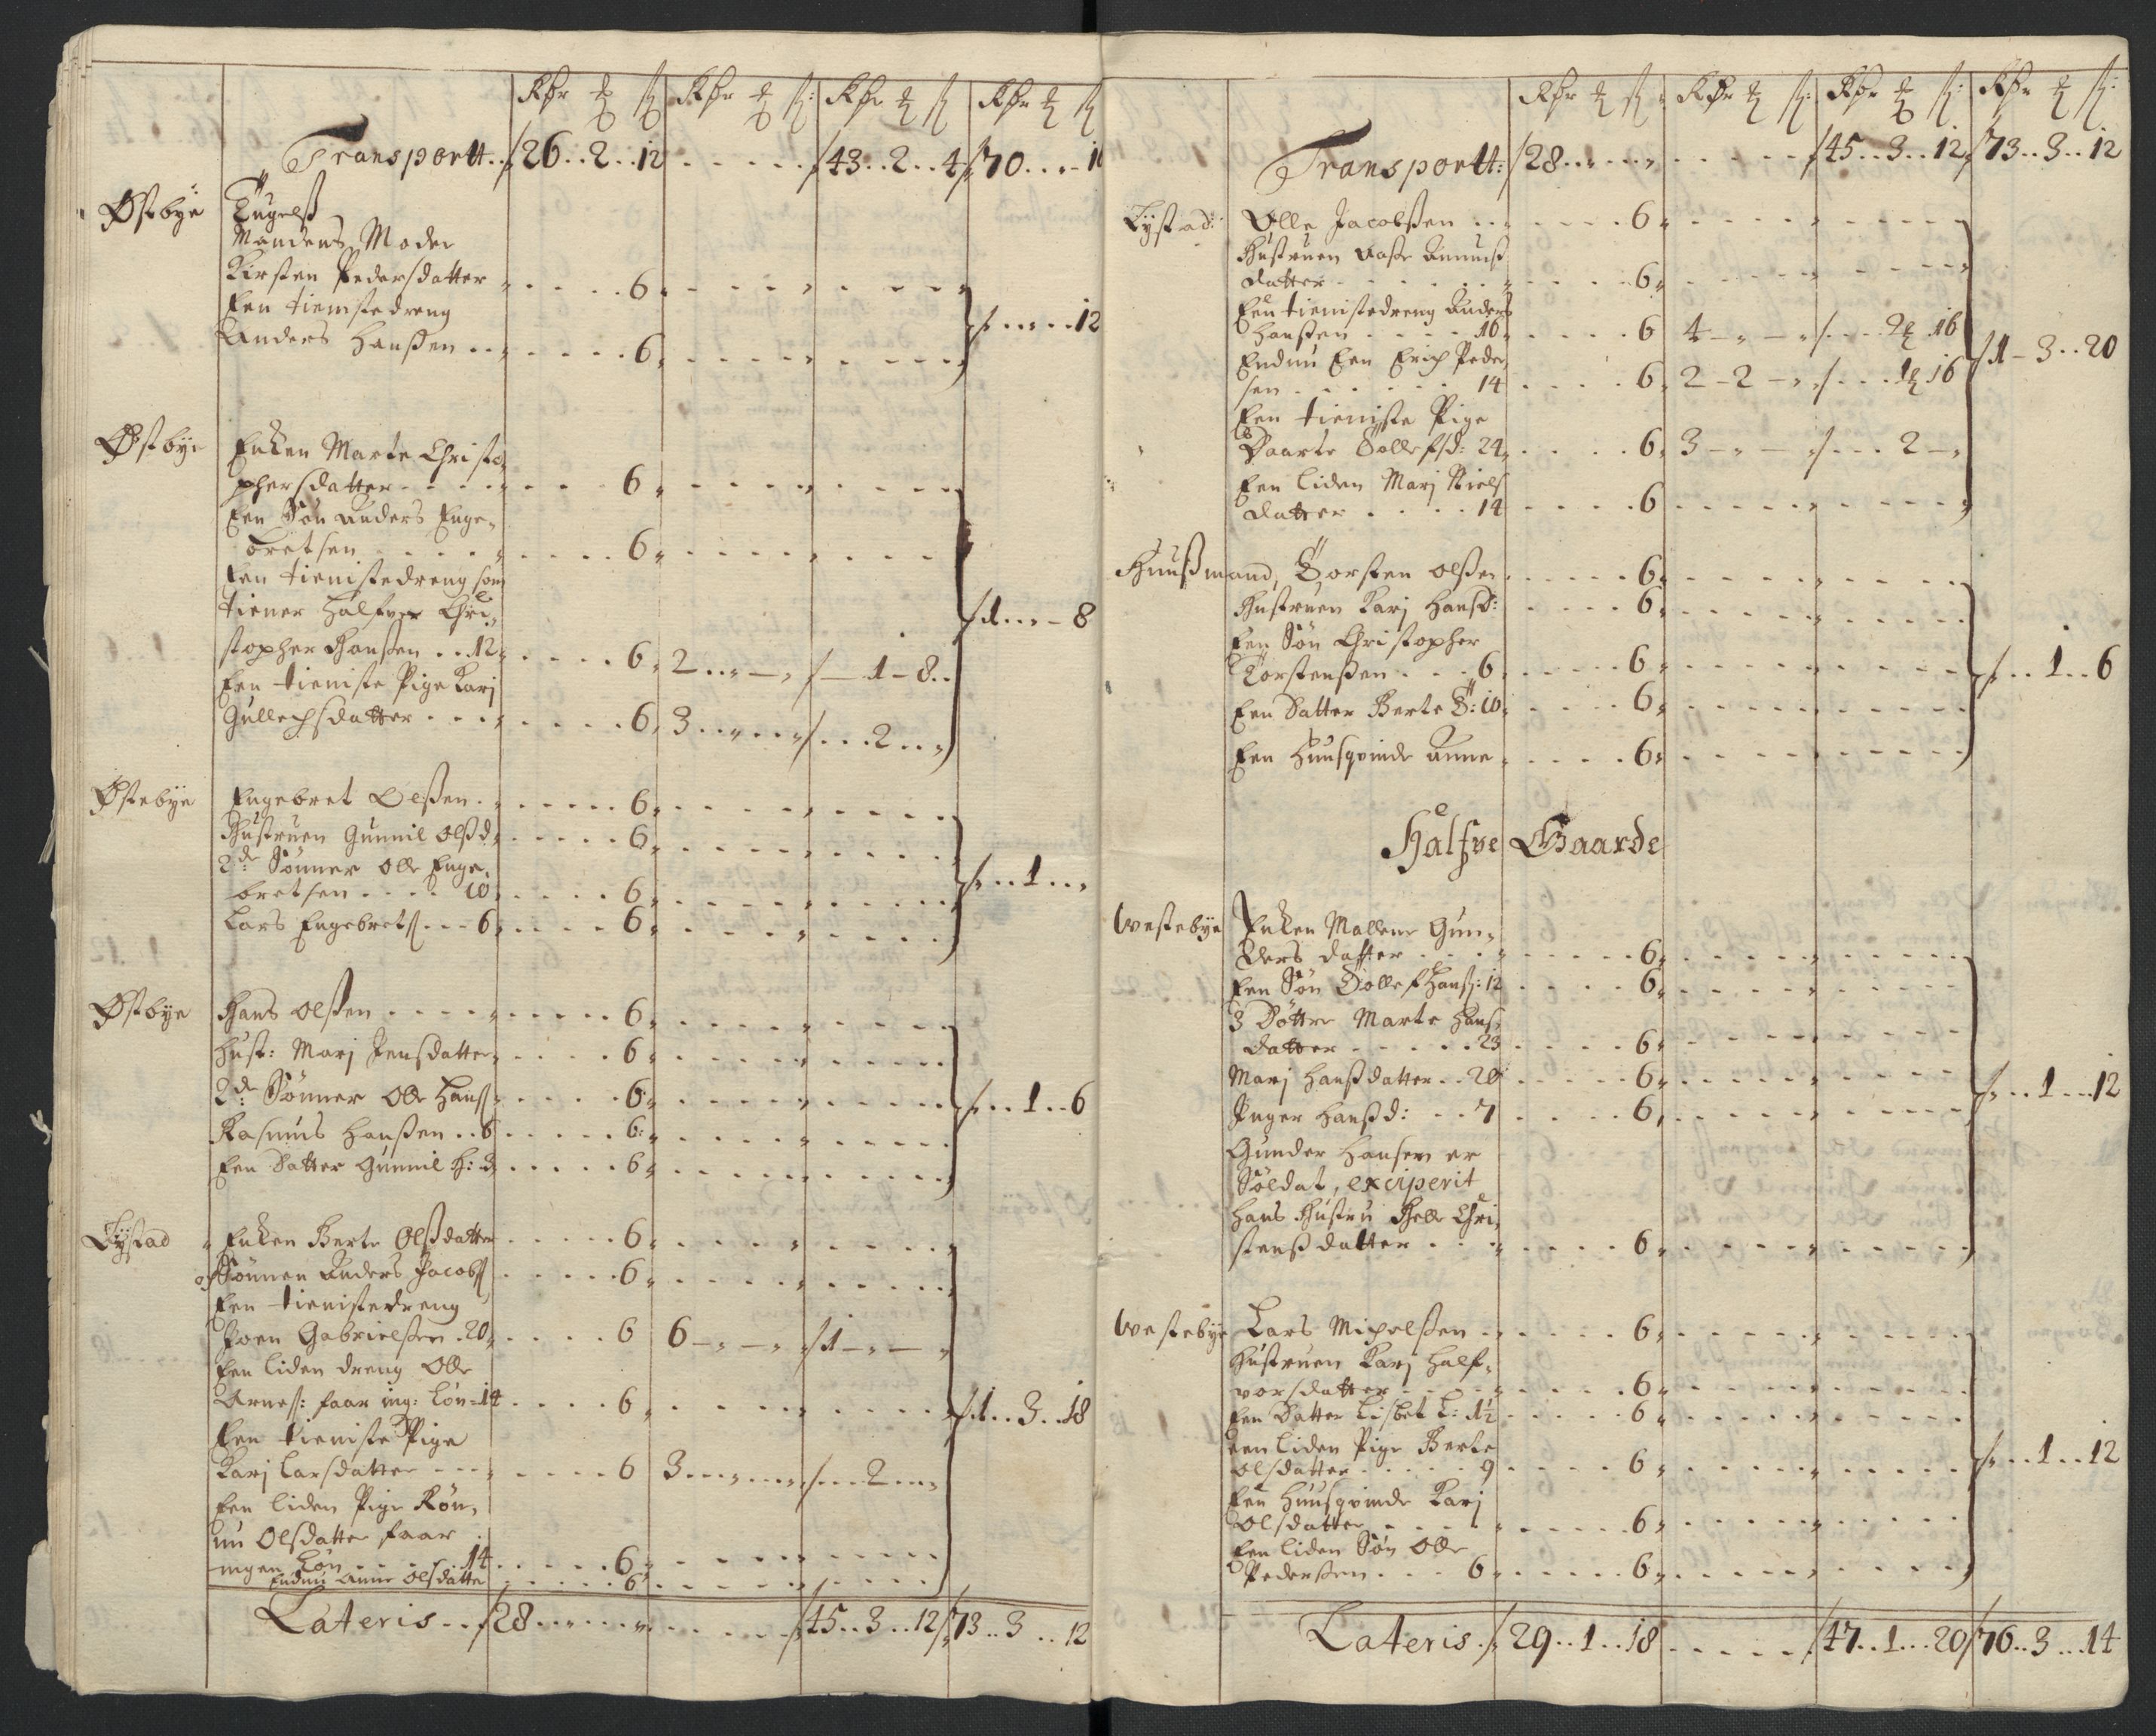 Rdr # ß Rdr # ß: Rdr # ß Rdr # ß
Transportt.. / 26..2..12 - - - - - / 43..2..4 / 70..„-16
Østbye
Mandens Moder
Kirsten Pedersdatter „ - - - - 6„
Een tienistedreng
Anders Hanßen .. „ - - - - 6„
/ „ . . „ . . 12
Østbye Enken Marte Christo„
phersdatter - - - - 6„
Een Søn Anders Enge„
bretsen - - - - 6„
Een tienistedreng som
tiener halfver Chri„
stopher Hanßen .. 12„ - - - - 6„ 2..„-„ /-1-8..
Een tieniste Pige Karj
Gullechsdatter - - - - 6„ 3..„..„ /...2..„
/ 1..„-8
Østebye Engebret Olßen . - - - - 6„
Hustruen Gunnil Olßd„ - - - - 6„
2de Sønner Olle Enge„
bretsen . . . . 10„ - - - - 6„
Lars Engebretß - - - 6„ - - - - 6„
/ „ . . 1 . . „
Østbye Hans Olßen - - - - 6„
Hust: Marj Jensdatter„ - - - - 6„
2de Sønner Olle Hanß„ - - - - 6„
Rasmus Hanßen .. 6 - - - - 6„
Een Datter Gunnil H: 3„ - - - - 6„
/ „ . . 1 . . 6
Lystad Enken Berte Olßdatter - - - - 6„
Sønnen Anders Jacobß - - - - 6„
Een tienistedreng
Joen Gabrielßen . 20„ - - - - 6 6-„-„ /1-„-„
Een liden dreng Olle
Arneß: faar ing: Løn - 14 - - - - 6„
Een tieniste Pige
Karj Larsdatter - - - „ - - - - 6 3..„..„ /...2..„
Een liden Pige Røn„
nu Olsdatter faar
ingen Løn . . . . 14 - - - - 6„
Endnu Anne Olsdatter - - - - 6„
/ 1..3..18
Lateris - - / 28..„..„ - - - - / 45..3..12 / 73..3..12
Rdr # ß Rdr # ß: Rdr # ß: Rdr # ß:
Transportt: / 28..„..„ - - - - / 45..3..12„ / 73..3..12
Lystad: Olle Jacobßen . . - - - - 6„
Hustruen Aaße Amunß
datter - - - - 6„
Een tienistedreng Anders
Hanßen - - - 16„ - - - - 6 4-„-„ /...2# 16
Endnu Een Erich Peder
sen - - - - 14 - - - - 6„ 2-2-„ /...1# 16
Een tieniste Pige
Baarte Tollefsd: 24„ - - - - 6„ 3-„- /...2-„
Een liden Marj Niels
datter . . . . 14 - - - - 6
/ 1-3..20
Huußmand, Torsten Olßen - - - - 6„
Hustruen Karj Hansd: - - - - 6„
Een Søn Christopher
Torstenßen . . . 6„ - - - - 6„
Een Datter Berte T: 10„ - - - - 6„
Een Huusqvinde Anne „ - - - - 6„
/ „ . . 1 . . 6
Halfve Gaarde
Westebye Enken Mallene Gun„
ders datter . . . „ - - - - 6„
Een Søn Tollef Hanß: 12 - - - - 6„
3 Døttre Marte Hans„
datter - - - - 23 - - - - 6„
Marj Hanßdatter . . 20 - - - - 6„
Inger Hanßd: - - 7 - - - - 6„
Gunder Hansen er
Soldat, exciperit
Hans Hustru Helle Chri„
stenßdatter . . . „ - - - - 6„
/ „ . . 1 . . 12
Westebye Lars Michelßen . „ - - - - 6„
Hustruen Karj Half„
vorsdatter - - - - 6„
Een Datter Lisbet L: 1½ - - - - 6„
een liden Pige Berte
Olsdatter . . . . 9 - - - - 6„
Een Huusqvinde Karj
Olsdatter - - - - 6„
Een liden Søn Olle
Pederßen . . . 6„ - - - - 6„
/ „ . . 1 . . 12
Lateris . / 29..1..18 - - - - / 47..1...20 / 76..3...14